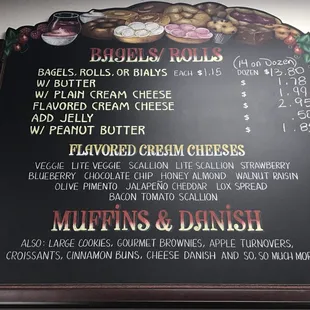 BAGELS/ ROLLS
(14 on Dozen)
BAGELS, ROLLS, OR BIALYS EACH $1.15 DOZEN $13.80
W/ BUTTER $ 1.78
W/ PLAIN CREAM CHEESE $ 1.99
FLAVORED CREAM CHEESE $ 2.95
ADD JELLY .50
W/ PEANUT BUTTER $
FLAVORED CREAM CHEESES
VEGGIE LITE VEGGIE SCALLION LITE SCALLION STRAWBERRY
BLUEBERRY CHOCOLATE CHIP HONEY ALMOND WALNUT RAISIN
OLIVE PIMENTO JALAPEÑO CHEDDAR LOX SPREAD
BACON TOMATO SCALLION
MUFFINS & DANISH
ALSO: LARGE COOKIES, GOURMET BROWNIES, APPLE TURNOVERS,
CROISSANTS, CINNAMON BUNS, CHEESE DANISH AND SO, SO MUCH MOR